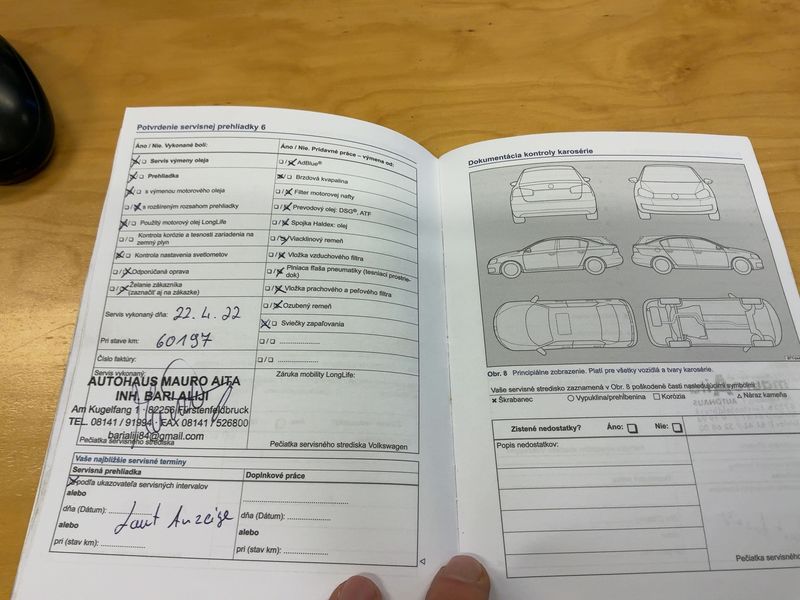 Potvrdenie servisnej prehliadky 6
Áno / Nie. Vykonané boli:
Servis výmeny oleja
Prehliadka
s výmenou motorového oleja
s rozšíreným rozsahom prehliadky
Použitý motorový olej LongLife
Kontrola korózie a tesnosti zariadenia na
zemný plyn
Kontrola nastavenia svetlometov
Odporúčaná oprava
Želanie zákazníka
(zaznačiť aj na zákazke)
Servis vykonaný dňa: 22.4.22
Pri stave km: 60197
Číslo faktúry:
Servis vykonaný:
AUTOHAUS MAURO AITA
INH. BARI ALIJI
Am Kugelfang 1 · 82256 Fürstenfeldbruck
TEL. 08141 / 91994 · FAX 08141 / 526800
barialiji84@gmail.com
Pečiatka servisného strediska
Áno / Nie. Prídavné práce – výmena od:
AdBlue®
Brzdová kvapalina
Filter motorovej nafty
Prevodový olej: DSG®, ATF
Spojka Haldex: olej
Viacklinový remeň
Vložka vzduchového filtra
Plniaca fľaša pneumatiky (tesniaci prostrie-
dok)
Vložka prachového a peľového filtra
Ozubený remeň
Sviečky zapaľovania
Záruka mobility LongLife:
Pečiatka servisného strediska Volkswagen
Vaše najbližšie servisné termíny
Servisná prehliadka
podľa ukazovateľa servisných intervalov
alebo
dňa (Dátum): ..................
Laut Anzeige
alebo
pri (stav km): ..................
Doplnkové práce
dňa (Dátum): ..................
alebo
pri (stav km): ..................
Dokumentácia kontroly karosérie
Obr. 8 Principiálne zobrazenie. Platí pre všetky vozidlá a tvary karosérie.
Vaše servisné stredisko zaznamená v Obr. 8 poškodené časti nasledujúcimi symbolmi
Škrabanec
Vypuklina/prehĺbenina
Korózia
Náraz kameňa
Zistené nedostatky? Áno: Nie:
Popis nedostatkov:
Pečiatka servisného